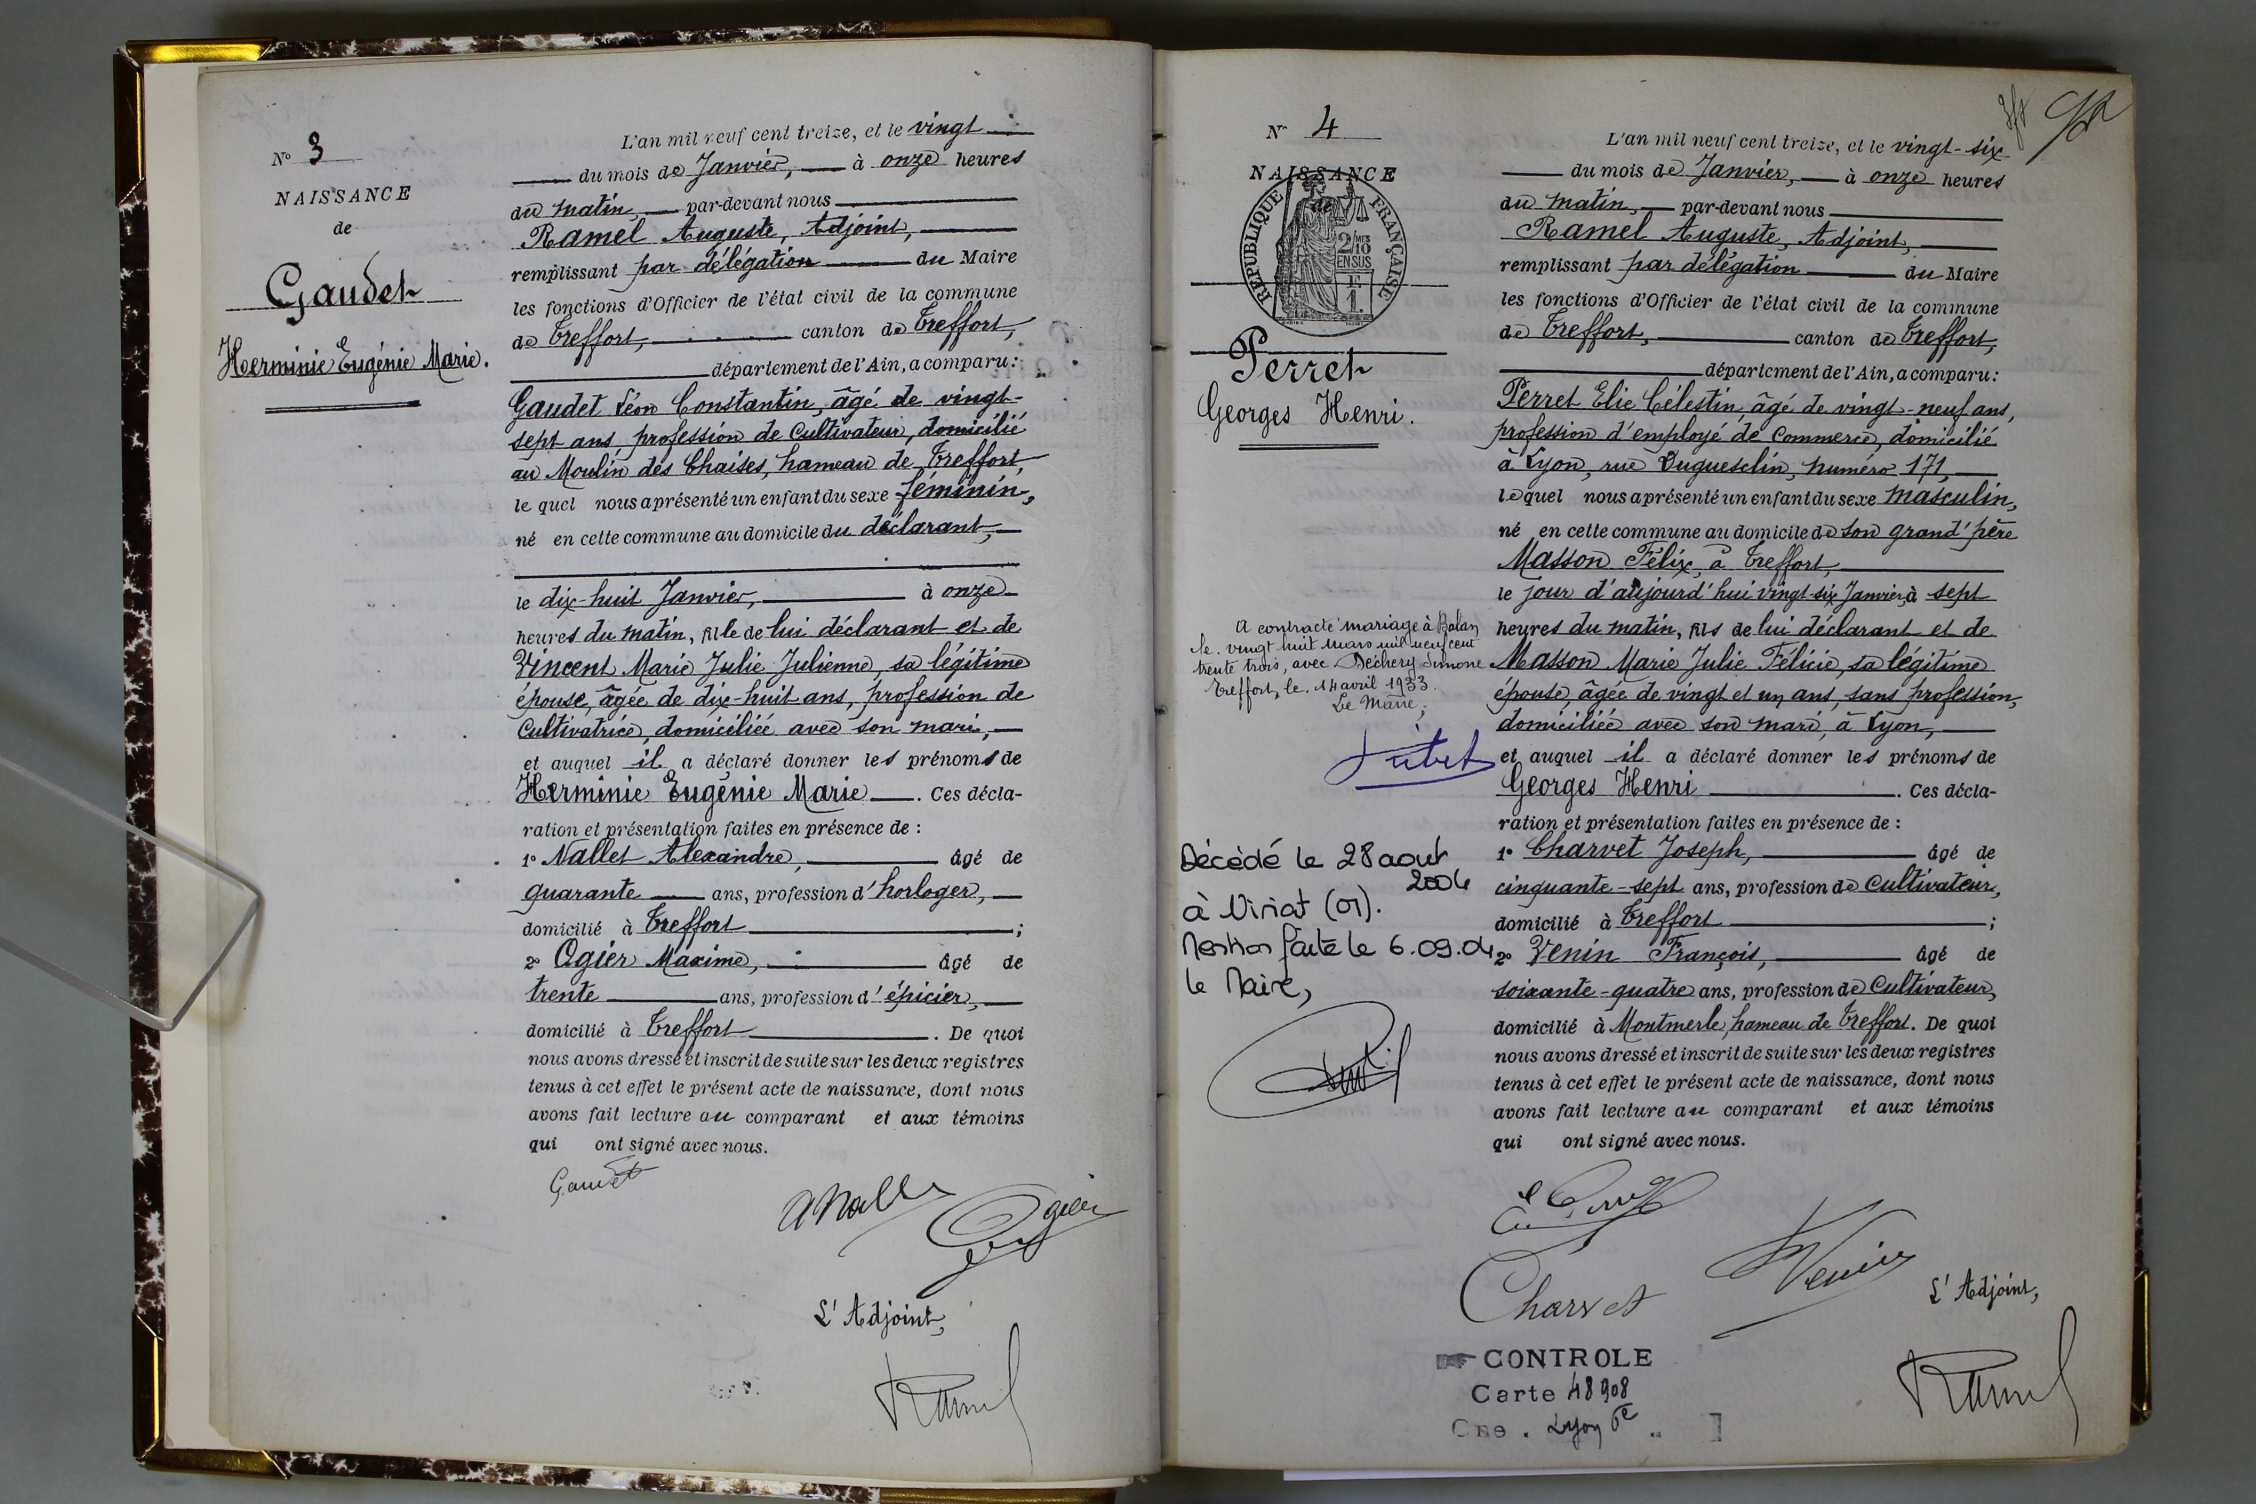 N° 3
NAISSANCE
de
Gaudet
Herminie Eugénie Marie.
L'an mil neuf cent treize, et le vingt
du mois de Janvier, à onze heures
du matin, par-devant nous
Ramel Auguste, Adjoint,
remplissant par délégation du Maire
les fonctions d'Officier de l'état civil de la commune
de Treffort, canton de Treffort,
département de l'Ain, a comparu:
Gaudet Léon Constantin, âgé de vingt-
sept ans, profession de Cultivateur, domicilié
au Moulin des Chaises, hameau de Treffort,
le quel nous a présenté un enfant du sexe féminin,
né en cette commune au domicile du déclarant,
le dix-huit Janvier, à onze
heures du matin, fille de lui déclarant et de
Vincent Marie Julie Julienne, sa légitime
épouse, âgée de dix-huit ans, profession de
Cultivatrice, domiciliée avec son mari,
et auquel il a déclaré donner les prénoms de
Herminie Eugénie Marie. Ces décla-
ration et présentation faites en présence de :
1° Nallet Alexandre, âgé de
quarante ans, profession d'horloger,
domicilié à Treffort ;
2° Ogier Maxime, âgé de
trente ans, profession d'épicier,
domicilié à Treffort. De quoi
nous avons dressé et inscrit de suite sur les deux registres
tenus à cet effet le présent acte de naissance, dont nous
avons fait lecture au comparant et aux témoins
qui ont signé avec nous.
Gaudet
A Nallet
Ogier
L'Adjoint,
Ramel
N° 4
NAISSANCE
de
REPUBLIQUE FRANÇAISE
2/MES
10
EN SUS
F.
1.
Perret
Georges Henri.
A contracté mariage à Balan
le. vingt huit mars mil neuf cent
trente trois, avec Déchery Simone
Treffort, le. 14 avril 1933.
Le Maire,
Décédé le 28 aout
2004
à Viriat (01).
Mention faite le 6.09.04
le Maire,
L'an mil neuf cent treize, et le vingt-six
du mois de Janvier, à onze heures
du matin, par-devant nous
Ramel Auguste, Adjoint,
remplissant par délégation du Maire
les fonctions d'Officier de l'état civil de la commune
de Treffort, canton de Treffort,
département de l'Ain, a comparu:
Perret Elie Célestin, âgé de vingt-neuf ans,
profession d'employé de Commerce, domicilié
à Lyon, rue Duguesclin, numéro 171,
le quel nous a présenté un enfant du sexe masculin,
né en cette commune au domicile de son grand'père
Masson Félix, à Treffort,
le jour d'aujourd'hui vingt-six Janvier, à sept
heures du matin, fils de lui déclarant et de
Masson Marie Julie Félicie, sa légitime
épouse, âgée de vingt et un ans, sans profession,
domiciliée avec son mari, à Lyon,
et auquel il a déclaré donner les prénoms de
Georges Henri. Ces décla-
ration et présentation faites en présence de :
1° Charvet Joseph, âgé de
cinquante-sept ans, profession de Cultivateur,
domicilié à Treffort ;
2° Venin François, âgé de
soixante-quatre ans, profession de Cultivateur,
domicilié à Montmerle, hameau de Treffort. De quoi
nous avons dressé et inscrit de suite sur les deux registres
tenus à cet effet le présent acte de naissance, dont nous
avons fait lecture au comparant et aux témoins
qui ont signé avec nous.
Charvet
Venin
L'Adjoint,
Ramel
CONTROLE
Carte 48908
Cne. Lyon 6e